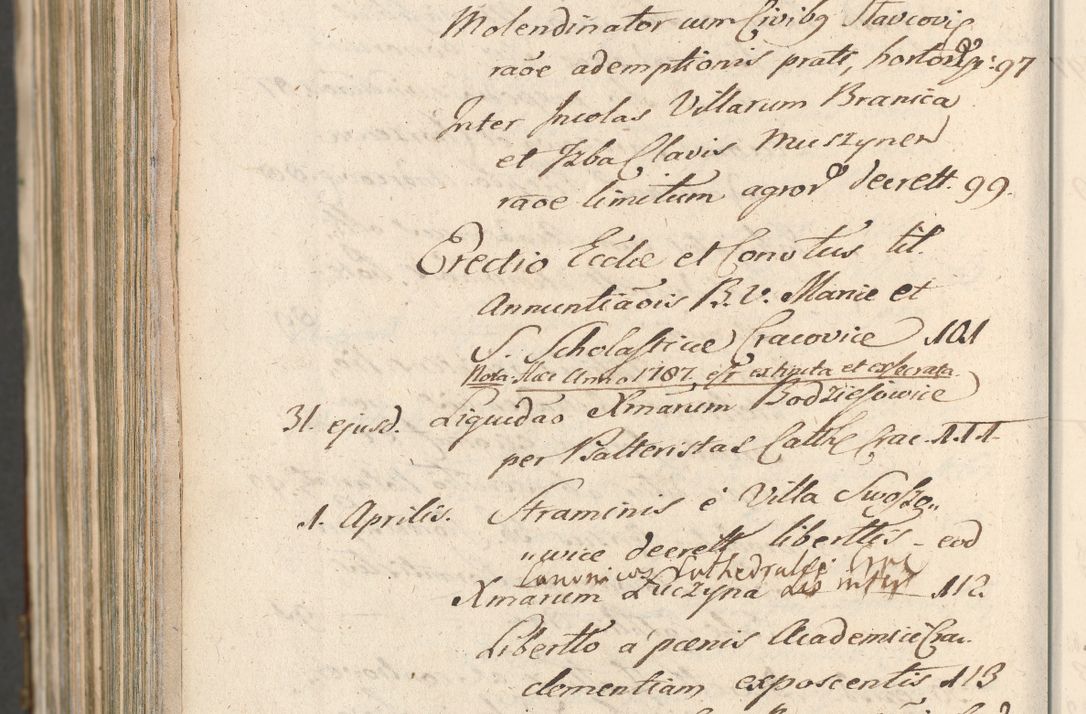 Molendinator cum Civibq Stavcovic
raõe ademptionis prati, hortorq p: 97
Inter Incolas Villarum Branica
et Izba Clavis Muszynen
raõe limitum agror decrett. 99.
Erectio Eccliæ et Convtus tit.
Annuntiaõis B. V. Mariæ et
S. Scholasticæ Cracoviæ 101
Nota. Hæc Anno 1787. est extincta et exsecrata.
31. ejusd. Liquidaõ Xmarum Bodziejowice
per Psalteristas Cath. Crac. 111.
1. Aprilis. Straminis è Villa Swoszo„
„wice decrett liberttes - eod
Canonicus Cathedralis
Xmarum Łuczyna 112
Libertto á pœnis Academiæ Crac.
clementiam exposcentis 113